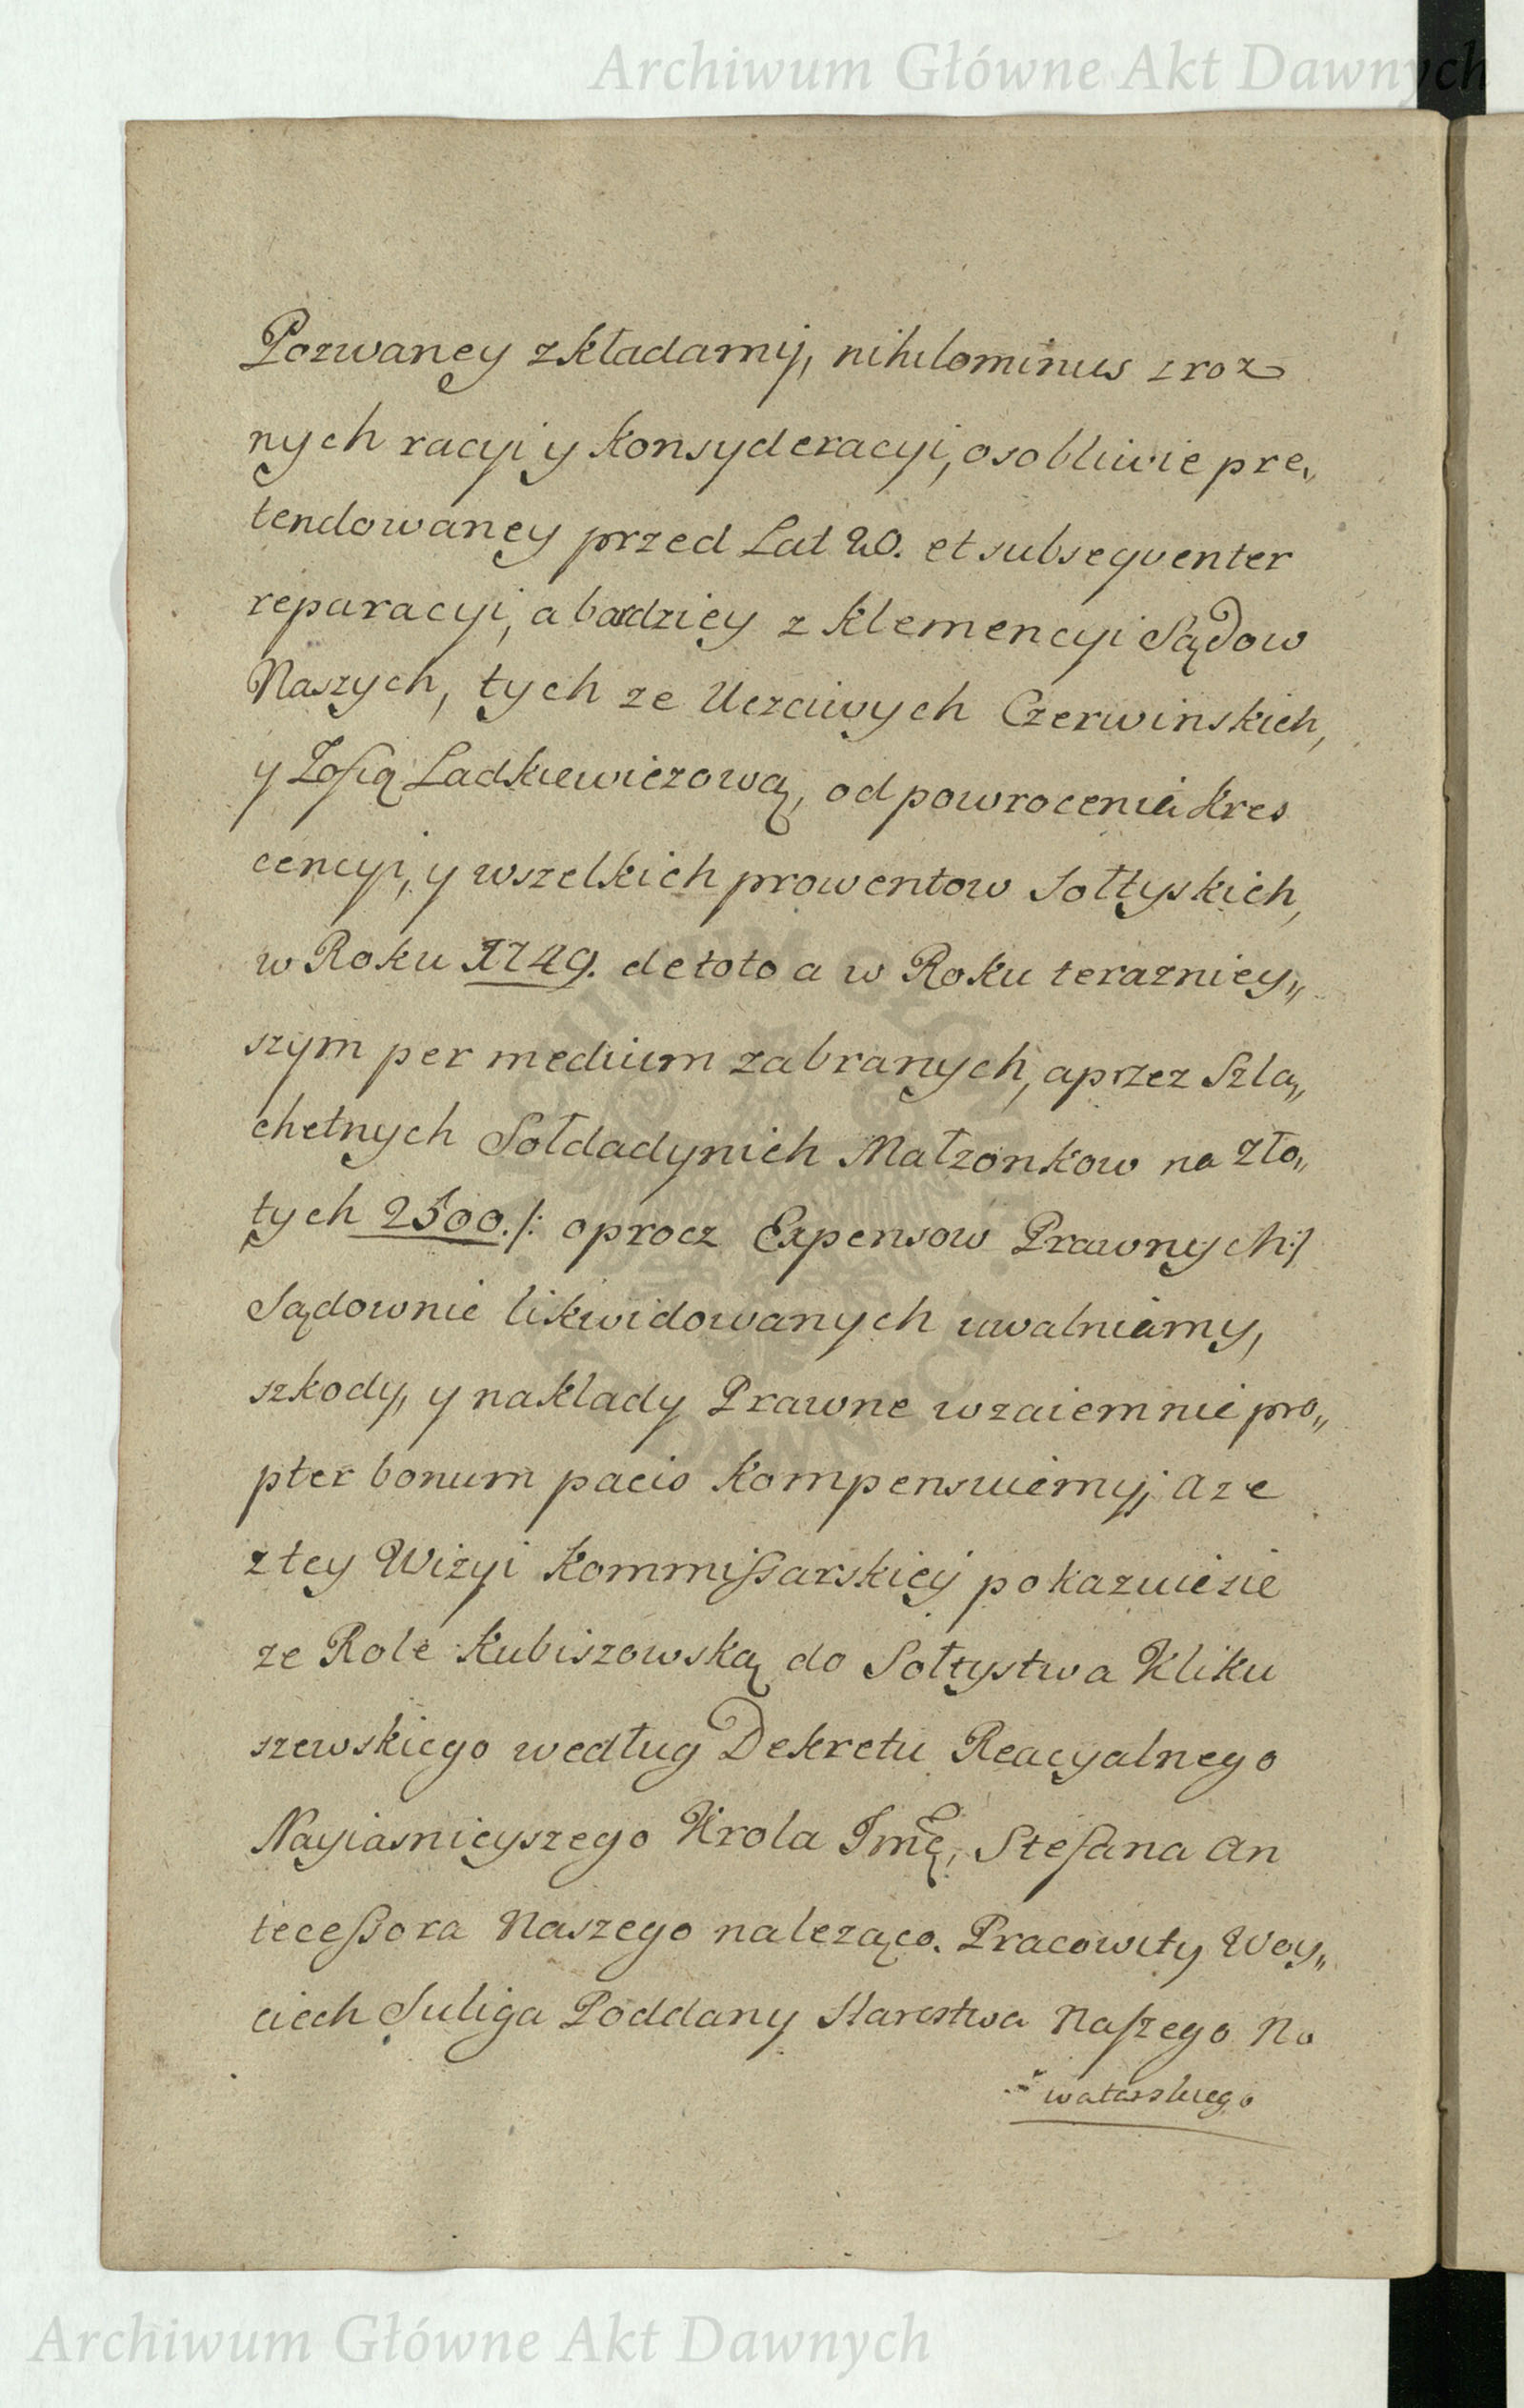 Archiwum Główne Akt Dawnych
Pozwaney zkładamy, nihilominus z roz
nych racyi y konsyderacyi, osobliwie pre„
tendowaney przed Lat 20. et subsequenter
reparacyi, a bardziey z klemencyi Sądow
Naszych, tych ze Uczciwych Czerwinskich,
y Zofią Ladkiewiczową, od powrocenia kres
cencyi, y wszelkich prowentow Sołtyskich,
w Roku 1749. de toto a w Roku terazniey„
szym per medium zabranych, a przez Szla„
chetnych Sołdadynich Małzonkow na Zło„
tych 2500./: oprocz Expensow Prawnych:/
Sądownie likwidowanych uwalniamy,
szkody, y nakłady Prawne wzaiemnie pro„
pter bonum pacis kompensuiemy; a ze
z tey Wizyi Kommissarskiey pokazuie sie
ze Role Kubiszowską do Sołtystwa Kliku
szewskiego według Dekretu Reacyalnego
Nayiasnieyszego Krola Jmę, Stefana An
tecessora Naszego nalezącą. Pracowity Woy„
ciech Suliga Poddany Starostwa Naszego No
watarskiego
ARCHIWUM GŁÓWNE AKT DAWNYCH
Archiwum Główne Akt Dawnych